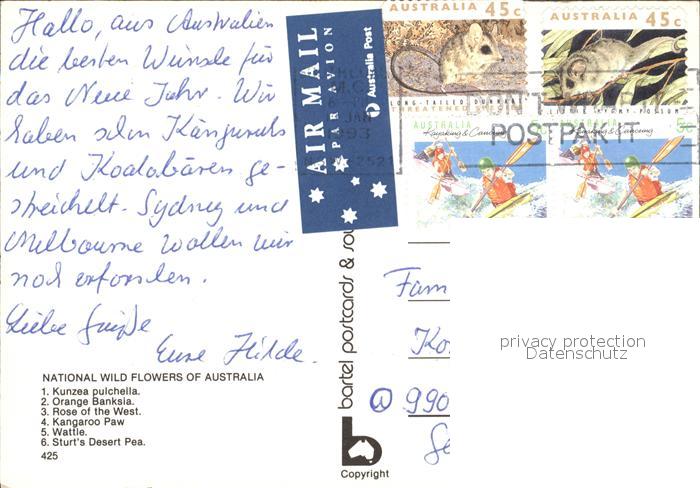 Hallo, aus Australien
die besten Wünsche für
das Neue Jahr. Wir
haben schon Känguruhs
und Koalabären ge-
streichelt. Sydney und
Melbourne wollen wir
noch erforschen.
Liebe Grüße
Eure Hilde.
NATIONAL WILD FLOWERS OF AUSTRALIA
1. Kunzea pulchella.
2. Orange Banksia.
3. Rose of the West.
4. Kangaroo Paw
5. Wattle.
6. Sturt's Desert Pea.
425
AIR MAIL
PAR AVION
Australia Post
AUSTRALIA 45c
LONG-TAILED DUNNART
THREATENED SPECIES
AUSTRALIA 45c
LITTLE PYGMY-POSSUM
AUSTRALIA
Kayaking & Canoeing
AUSTRALIA
Kayaking & Canoeing
JAN
1993
2521
POSTPAK IT
bartel postcards & sou
b
Copyright
Fam
Ko
990
privacy protection
Datenschutz